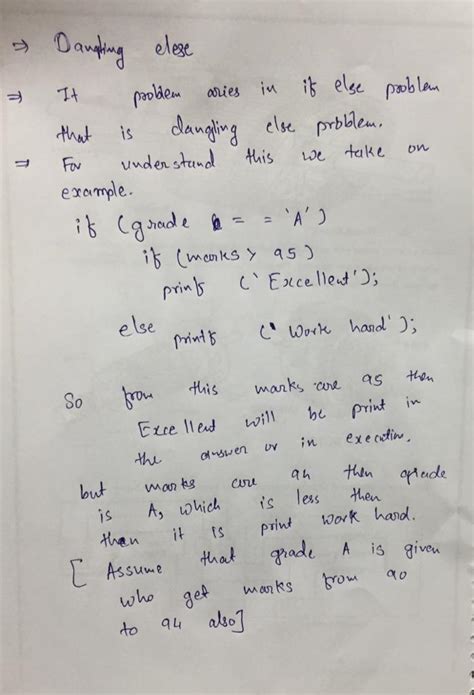 ⇒ Dangling elese
⇒ It problem aries in if else problem
that is dangling else prbblem.
⇒ For understand this we take on
example.
if (grade = = 'A')
if (marks > 95)
printf ('Excellent');
else printf ('Work hard');
So from this marks are 95 then
Excellent will be print in
the answer or in execution.
but marks are 94 then grade
is A, which is less then
then it is print work hard.
[ Assume that grade A is given
who get marks from 90
to 94 also]